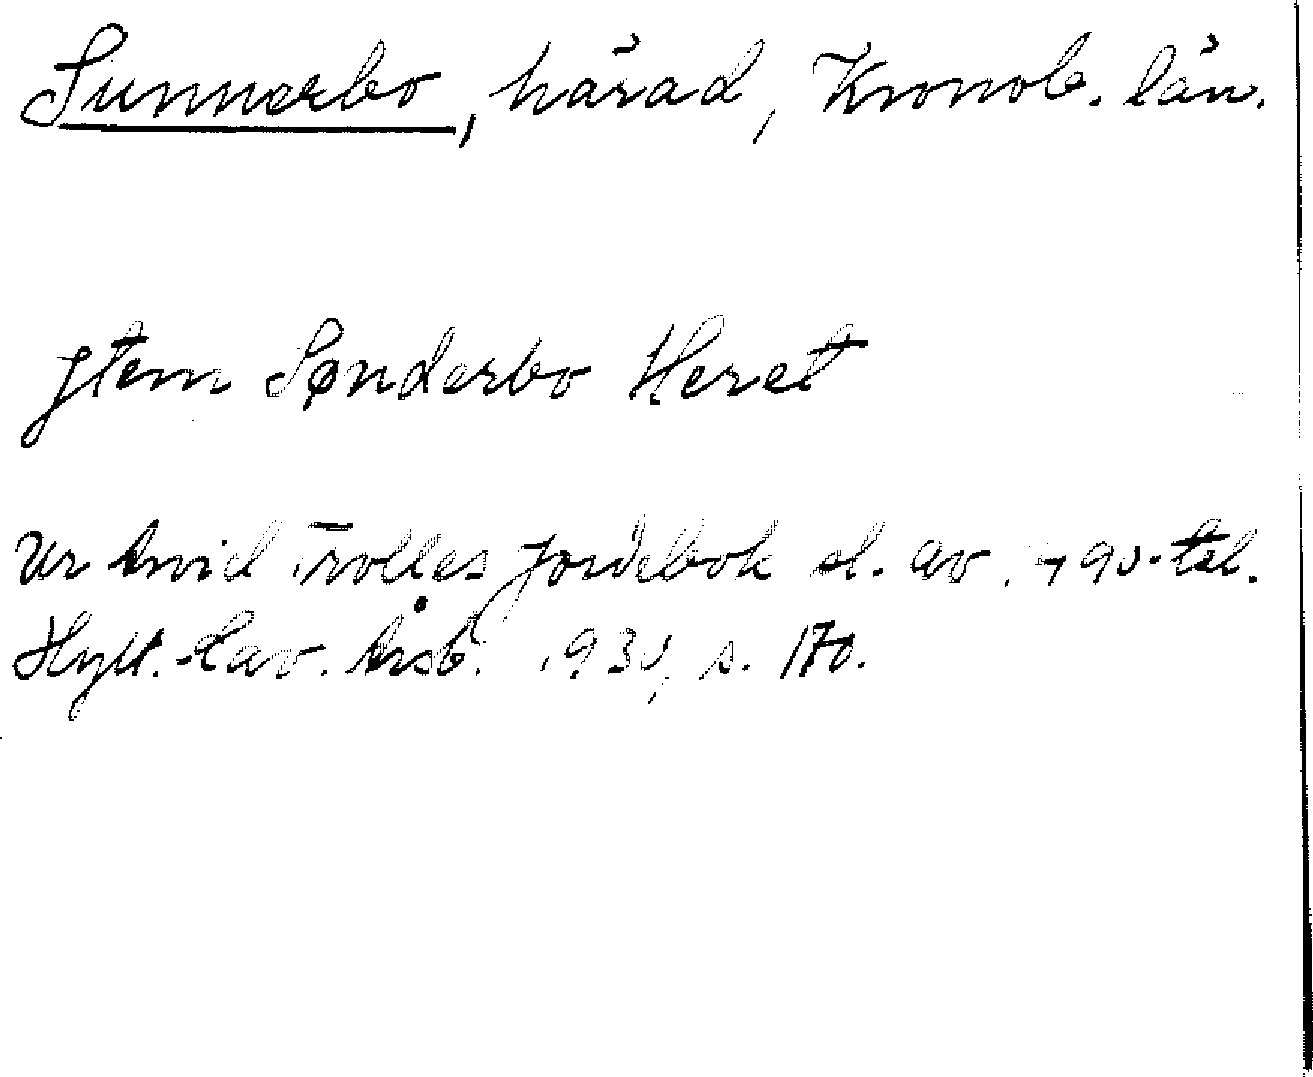 Sunnerbo, härad, Kronob. län.
Jtem Sønderbo Heret
Ur Arvid Trolles jordebok sl. av 1490-tal.
Hylt.-Cav. Årsb. 1934, s. 170.